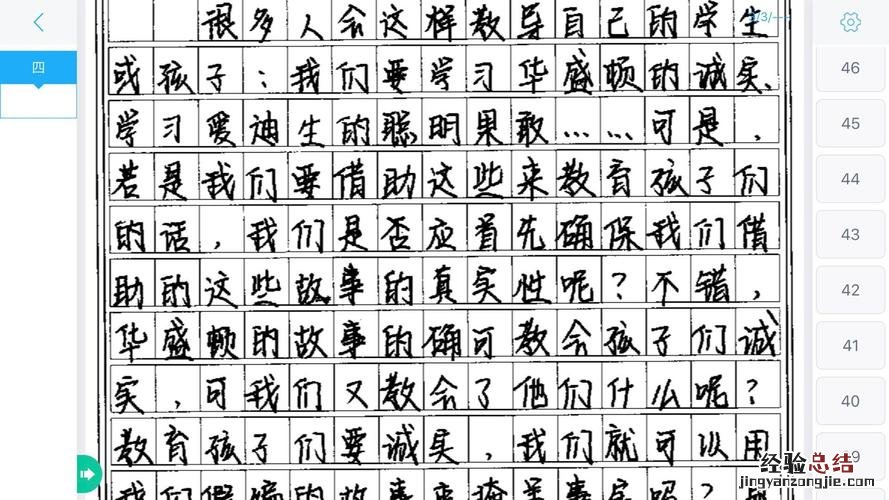 很多人会这样教导自己的学生
3/3/--
四
或孩子：我们要学习华盛顿的诚实、
学习爱迪生的聪明果敢……可是，
若是我们要借助这些来教育孩子们
的话，我们是否应首先确保我们借
助的这些故事的真实性呢？不错，
华盛顿的故事的确可教会孩子们诚
实，可我们又教会了他们什么呢？
教育孩子们要诚实，我们就可以用
我们假编的故事来掩盖事实吗？
46
45
44
43
42
41
40
经验总结
jingyanzongjie.com